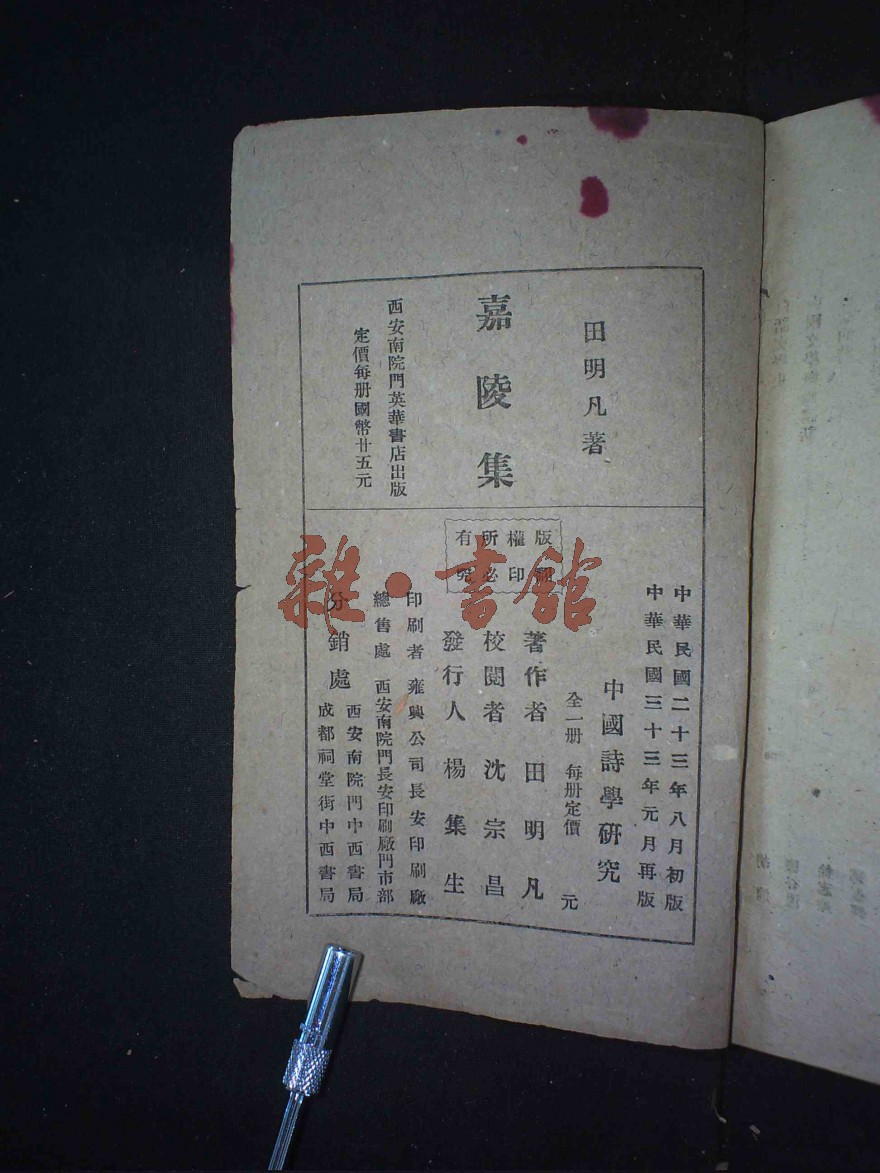 田明凡著
嘉陵集
西安南院門英華書店出版
定價每册國幣廿五元
版權所有
翻印必究
中華民國二十三年八月初版
中華民國三十三年元月再版
中國詩學研究
全一册 每册定價 元
著作者 田明凡
校閱者 沈宗昌
發行人 楊集生
印刷者 雍興公司長安印刷廠
總售處 西安南院門長安印刷廠門市部
分銷處
西安南院門中西書局
成都祠堂街中西書局
雜·書館